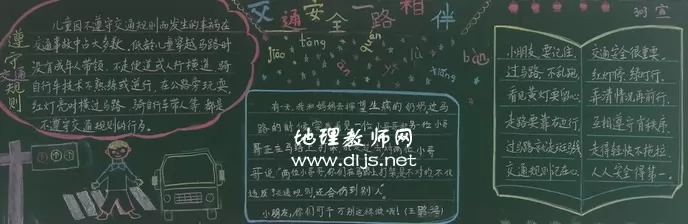 遵守交通规则
儿童因不遵守交通规则而发生的车祸在
交通事故中占大多数，低龄儿童穿越马路时
没有成年人带领，不走便道或人行横道，骑
自行车技术不熟练或逆行，在公路旁玩耍，
红灯亮时横过马路，骑自行车带人等，都是
不遵守交通规则的行为。
交通安全一路相伴
jiāo tōng ān quán lù xiāng bàn
有一天，我和妈妈去探望生病的
路的时候
哥正在马路上打架
哥说
违反交通规则还会伤到别人
小朋友，你们可千万别这样做哦！
303宣
小朋友，要记住，
过马路，不乱跑，
看见黄灯要留心，
走路要靠右边行，
过马路
交通规则记在心，
交通安全很重要。
红灯停，绿灯行，
弄清情况再前行，
互相遵守有秩序，
走得轻快不拖拉，
人人安全得第一。
地理教师网
www.dljs.net